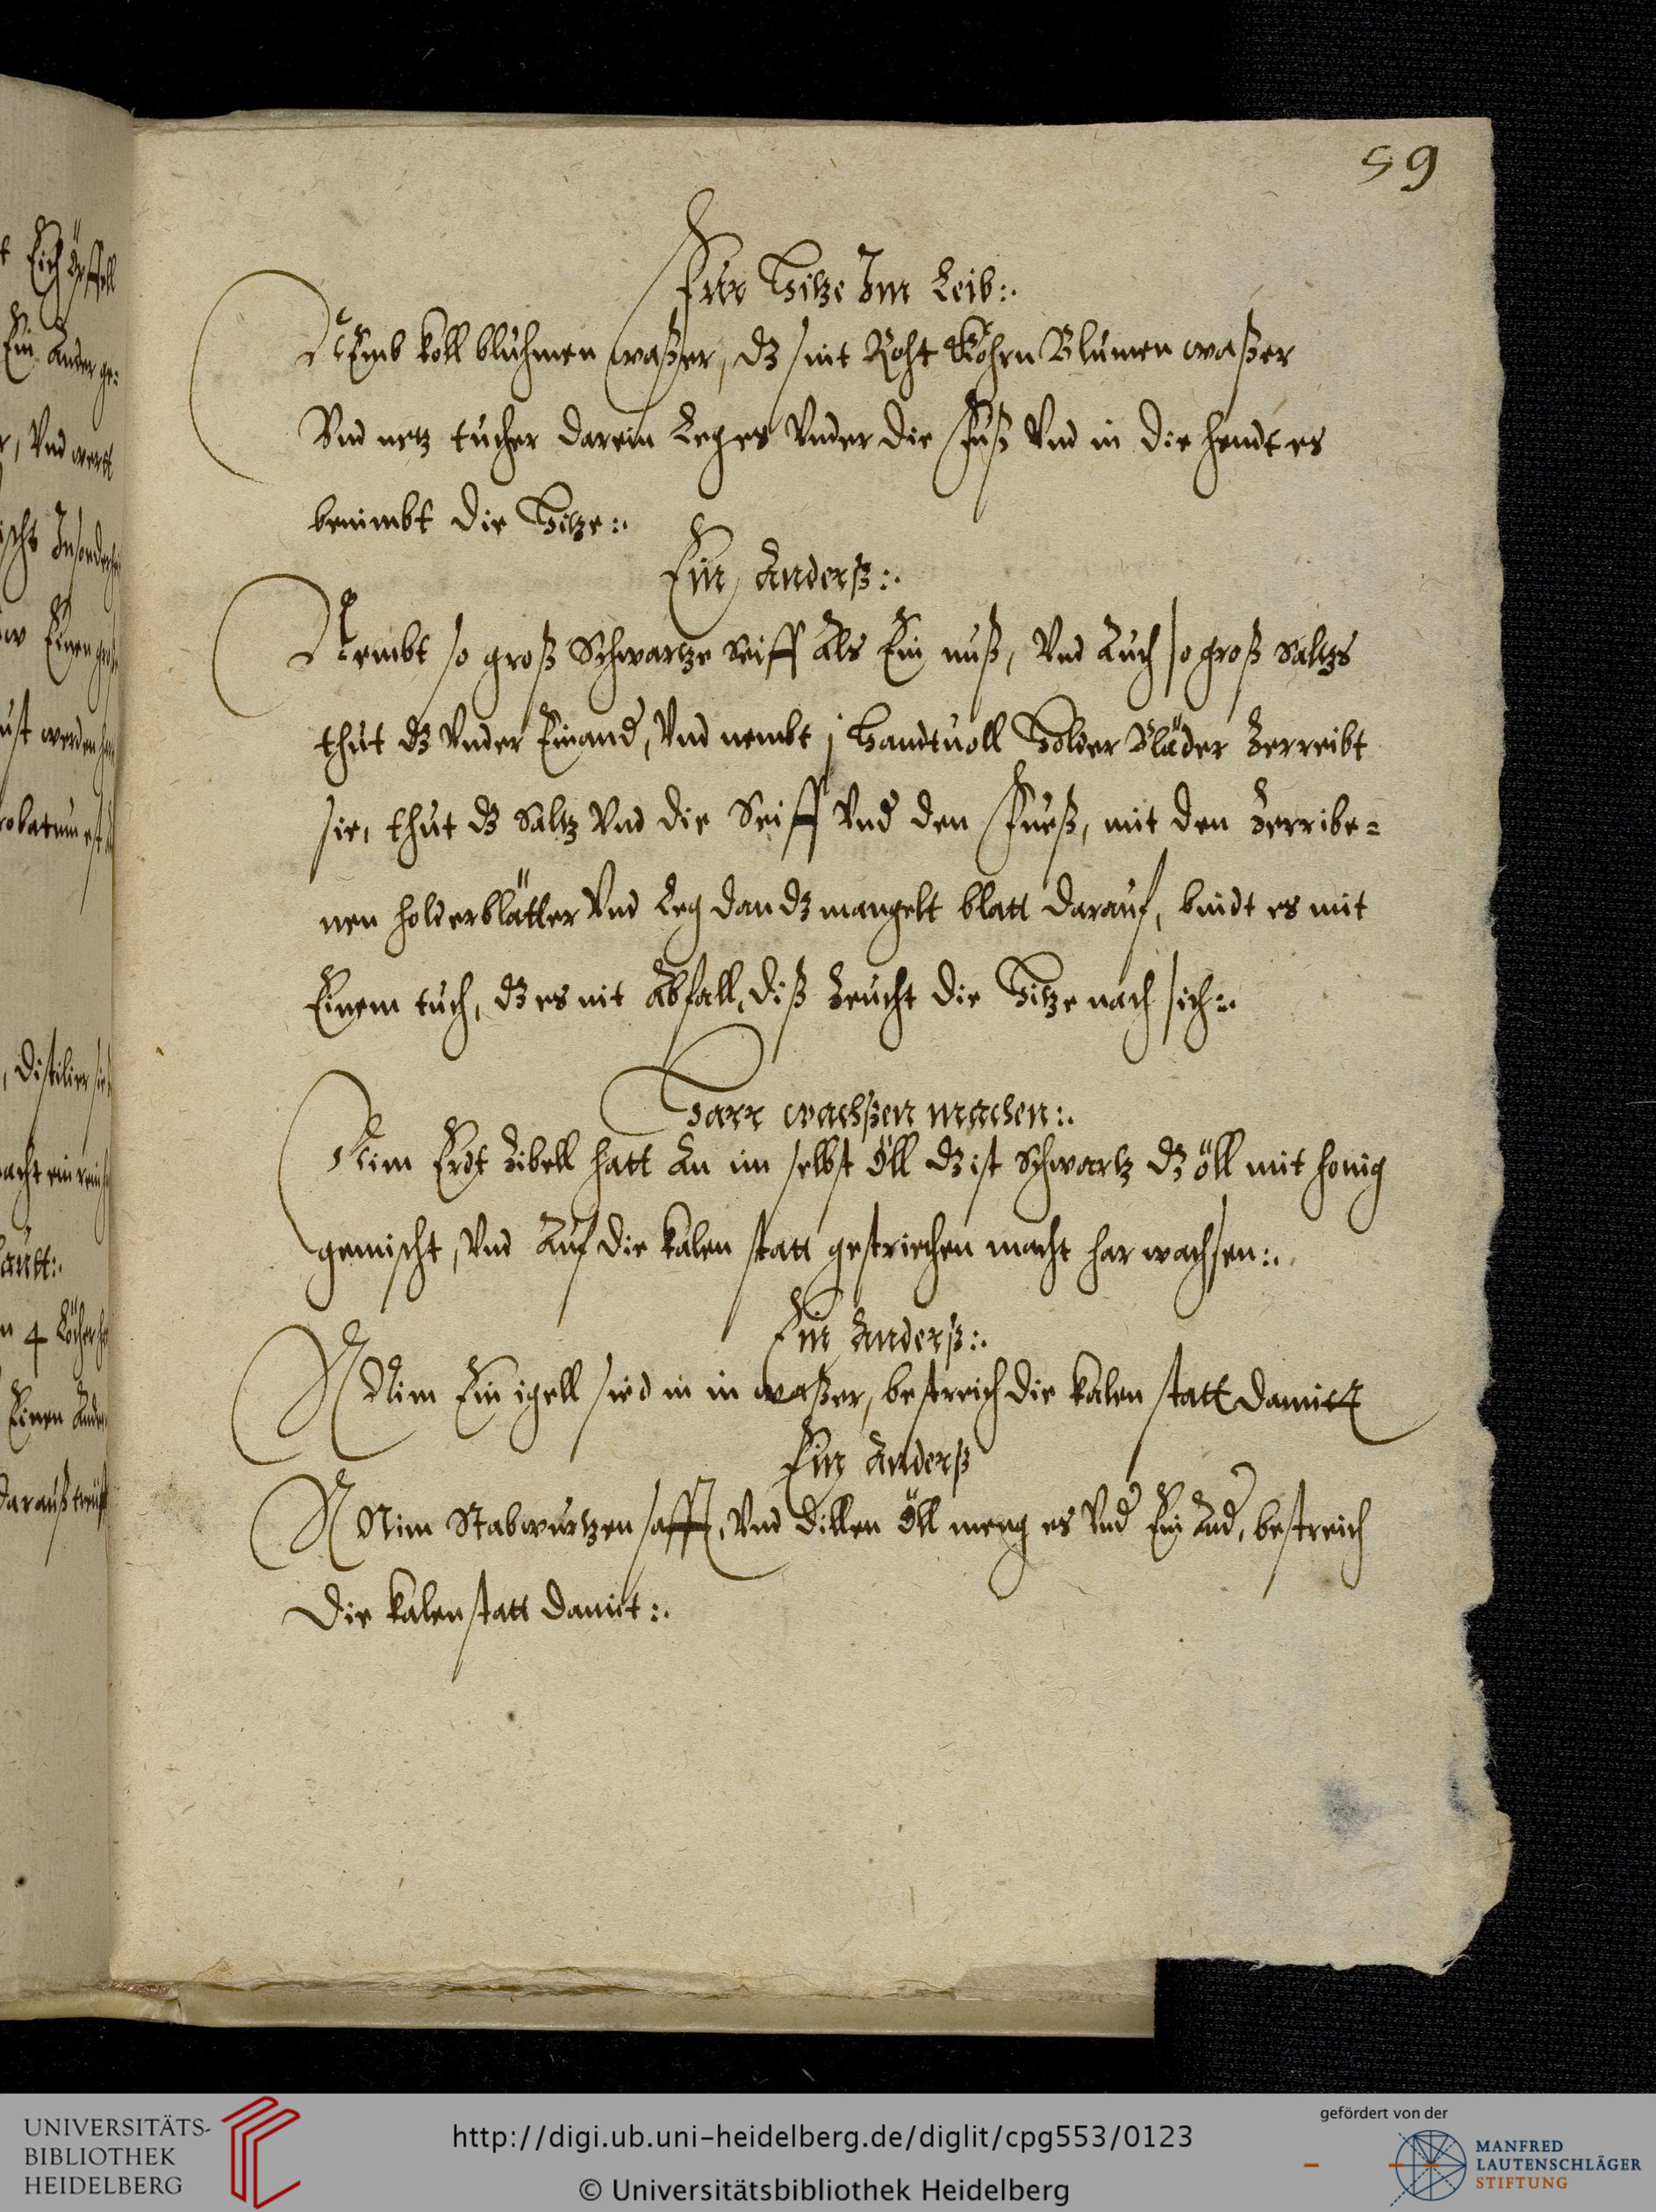 59
Fur Hitze Im Leib:.
NEmb koll bluhmen waßer, dz sint Roht Kohrn Blumen waßer
Vnd netz tucher darein Leg es Vnder die Fuß Vnd in die hendt es
benimbt die Hitze:.
Ein Anderß:.
Nembt so groß Schwartze Seiff Als Ein nuß, Vnd Auch so groß Saltzs
thut dz Vnder Einand, Vnd nembt j Handtuoll Holder Bläder Zerreibt
sie, thut dz Saltz Vnd die Seiff Vnd den Fueß, mit den Zerribe=
nen holderblätter Vnd Leg dan dz mangelt blatt darauf, bindt es mit
Einem tuch, dz es nit Abfall, diß Zeucht die Hitze nach sich:.
Harr wachßen machen:.
Nim Erdt Zibell hatt An im selbst öll dz ist Schwartz dz öll mit honig
gemischt, Vnd Auf die kalen statt gestriechen macht har wachsen:.
Ein Anderß:.
Nim Ein igell sied in in waßer, bestreich die kalen statt damitt
Ein Anderß
Nim Stabwurtzen safft, Vnd dillen öll meng es Vnd Ein And, bestreich
die kalen statt damit:.
UNIVERSITÄTS-
BIBLIOTHEK
HEIDELBERG
http://digi.ub.uni-heidelberg.de/diglit/cpg553/0123
© Universitätsbibliothek Heidelberg
gefördert von der
MANFRED
LAUTENSCHLÄGER
STIFTUNG